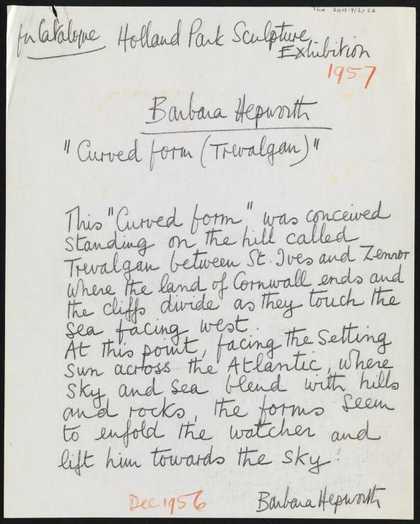 for Catalogue Holland Park Sculpture
Exhibition
1957
Barbara Hepworth
"Curved form (Trevalgan)"
This "Curved form" was conceived
standing on the hill called
Trevalgan between St. Ives and Zennor
where the land of Cornwall ends and
the cliffs divide as they touch the
sea facing west.
At this point, facing the setting
sun across the Atlantic, where
sky and sea blend with hills
and rocks, the forms seem
to enfold the watcher and
lift him towards the sky.
Dec 1956
Barbara Hepworth